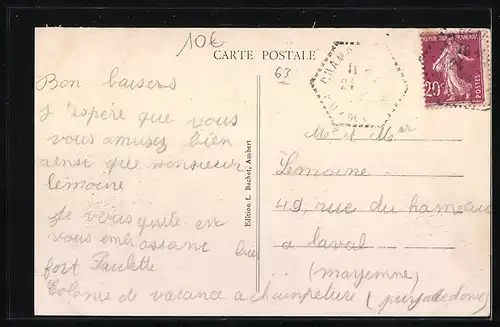 10€
CARTE POSTALE
63
REPUBLIQUE FRANCAISE
20c
POSTES
Bon baisers
J'espère que vous
vous amusez bien
ainsi que monsieur
lemoine
Je vous quite en
vous embrassant bien
fort Paulette
Colonie de vacance a champeture (puy de dome)
Edition L. Bachet, Ambert
Mr et Mme
Lemoine
49, rue du hameau
a laval
(mayenne)